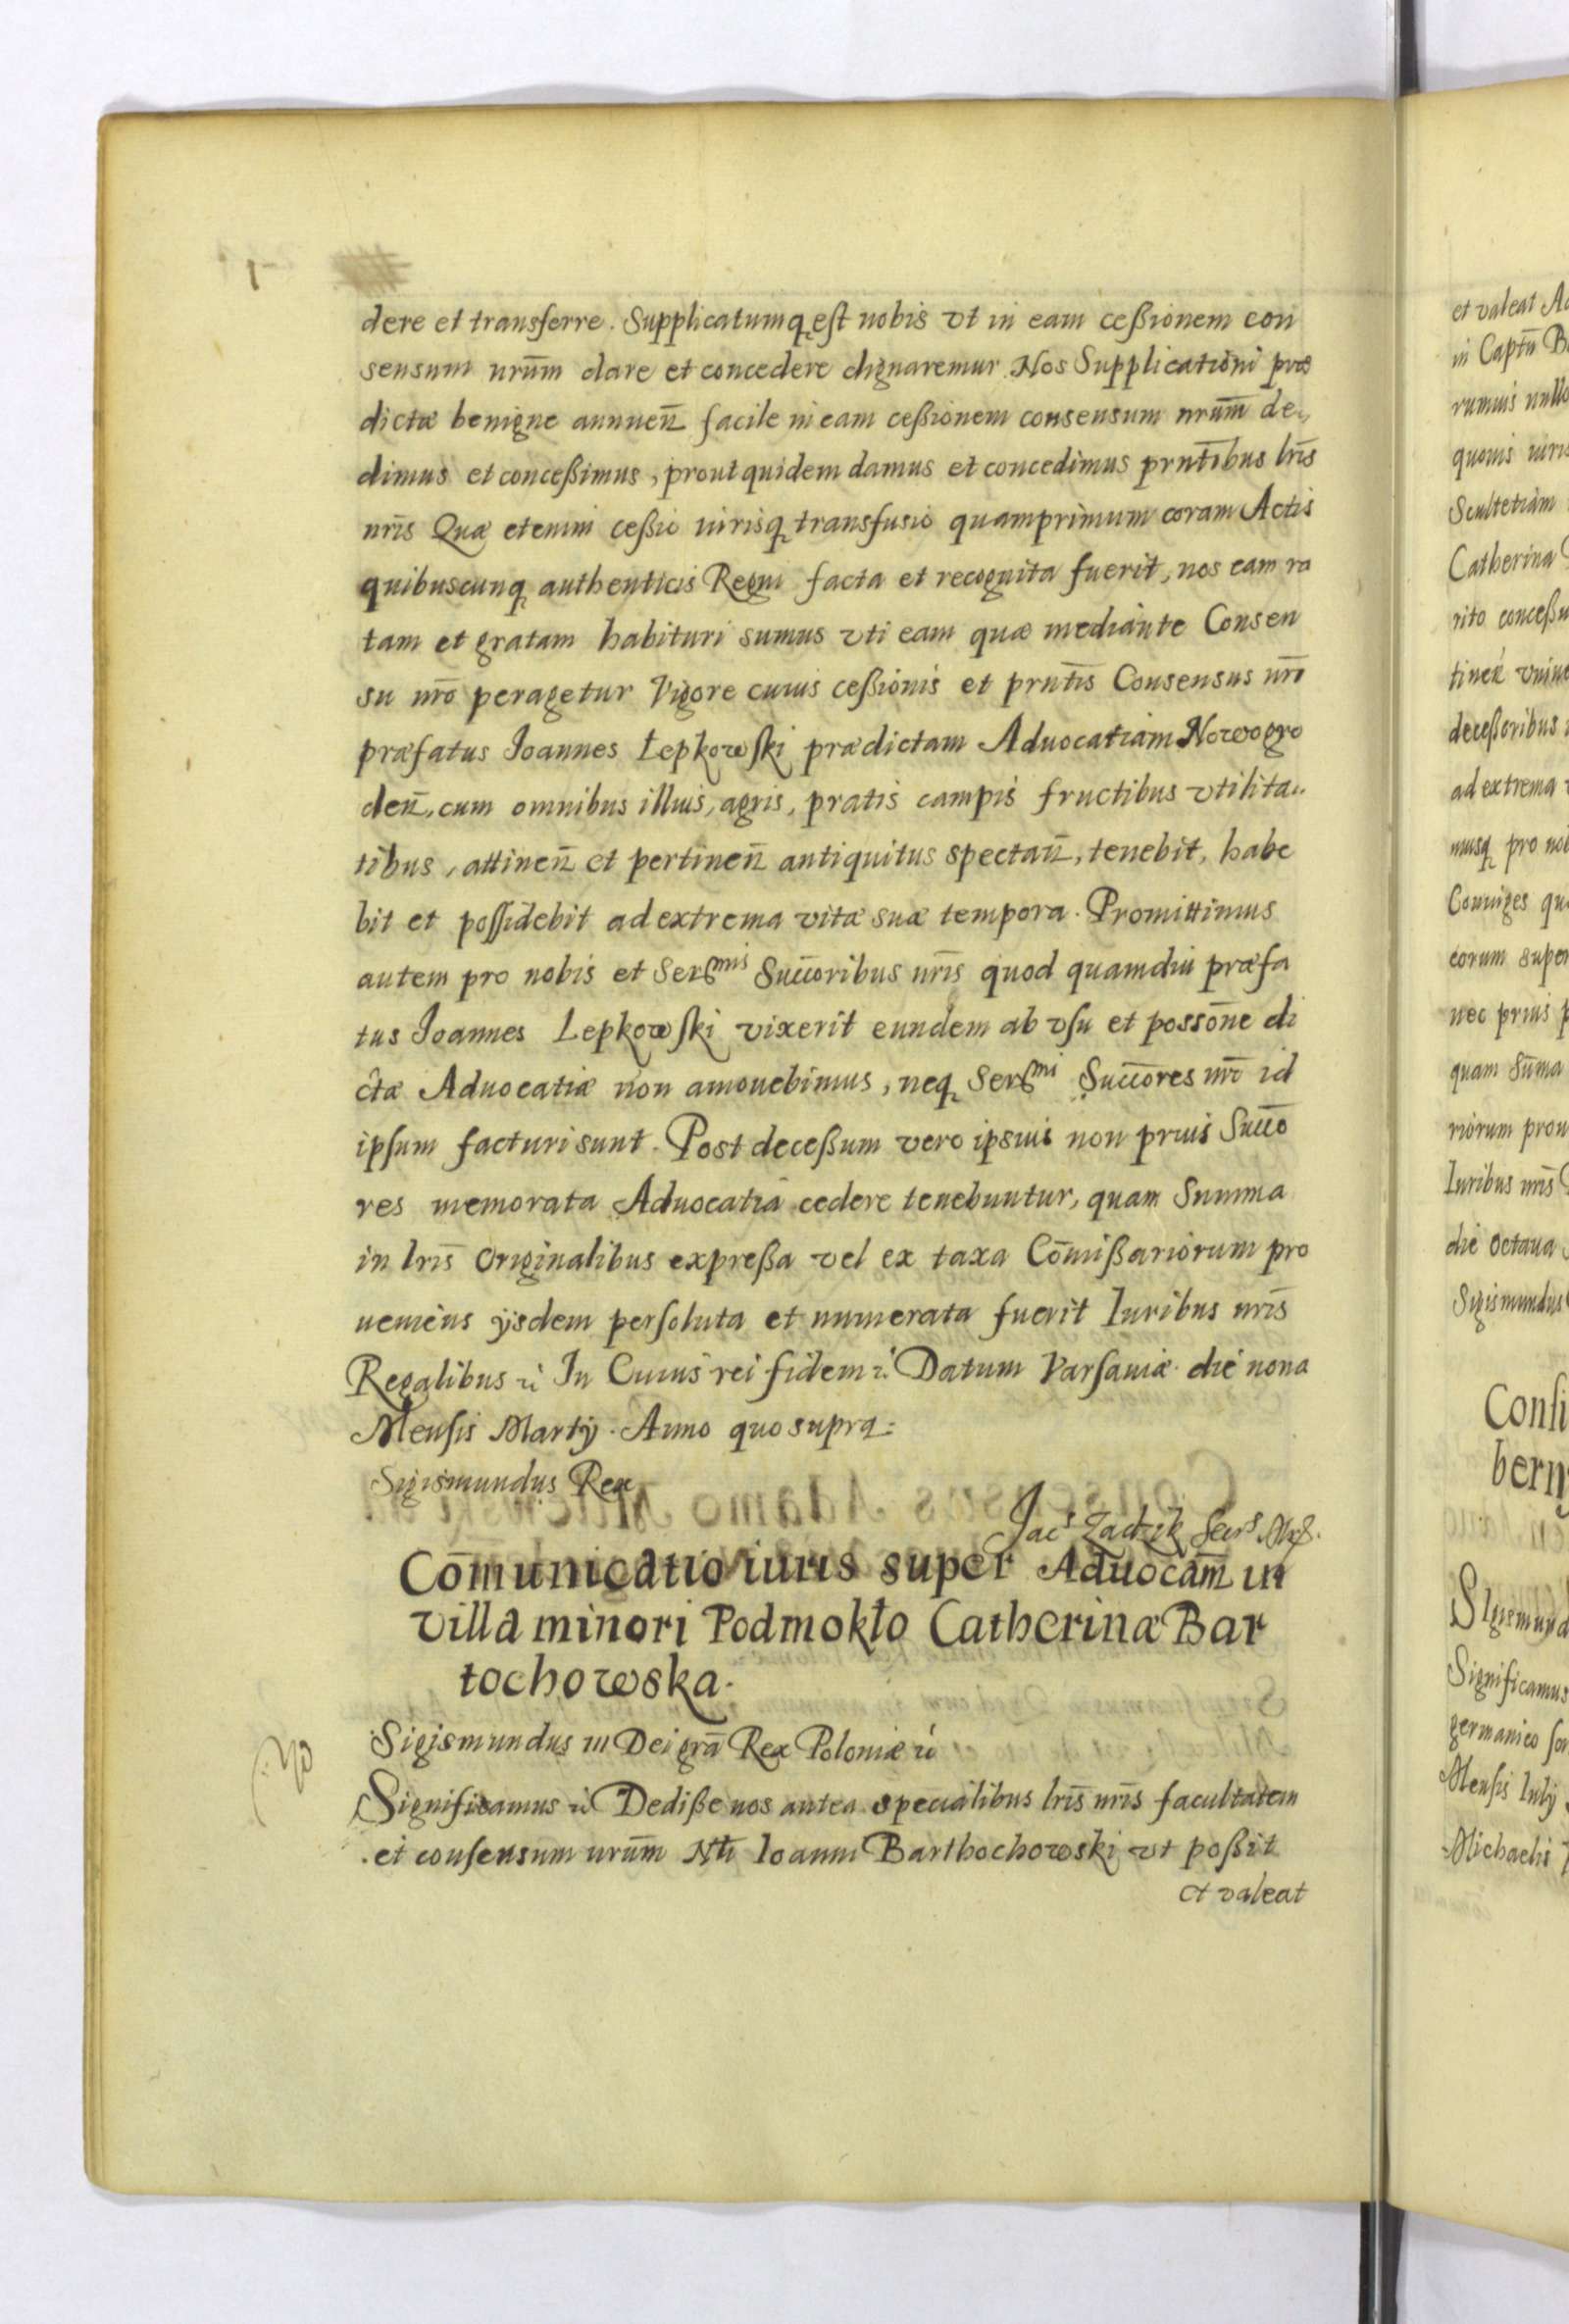 dere et transferre. Supplicatumq₃ est nobis vt in eam ceßionem con
sensum nrūm dare et concedere dignaremur. Nos Supplicationi præ
dictæ benigne annuen̄ facile in eam ceßionem consensum nrūm de„
dimus et conceßimus, prout quidem damus et concedimus prntībus lrīs
nrīs Quæ etenim ceßio iurisq₃ transfusio quamprimum coram Actis
quibuscunq₃ authenticis Regni facta et recognita fuerit, nos eam ra
tam et gratam habituri sumus vti eam quæ mediante Consen
su nrō peragetur Vigore cuius ceßionis et prntīs Consensus nrī
præfatus Joannes Łepkowski prædictam Aduocatiam Nowogro
den̄, cum omnibus illius, agris, pratis campis fructibus vtilita„
tibus, attinen̄ et pertinen̄ antiquitus spectan̄, tenebit, habe
bit et possidebit ad extrema vitæ suæ tempora. Promittimus
autem pro nobis et Serᵐⁱˢ Succ̄oribus nrīs quod quamdiu præfa
tus Joannes Lepkowski vixerit eundem ab vsu et possōne di
ctæ Aduocatiæ non amouebimus, neq₃ Serᵐⁱ Succ̄ores nrī id
ipsum facturi sunt. Post deceßum vero ipsius non prius Succō
res memorata Aduocatia cedere tenebuntur, quam Summa
in lrīs Originalibus expreßa vel ex taxa Com̄ißariorum pro
ueniens ÿsdem persoluta et numerata fuerit Iuribus nrīs
Regalibus &c In Cuius rei fidem &c Datum Varsauiæ die nona
Mensis Martÿ. Anno quo supra.
Sigismundus Rex
Jacˢ Zadzik Secrˢ
Com̄unicatio iuris super Aduocam̄ in
villa minori Podmokło Catherinæ Bar
tochowska.
Sigismundus III Dei grā Rex Poloniæ &c
Significamus &c Dediße nos antea specialibus lrīs nrīs facultatem
et consensum nrūm Nlī Ioanni Barthochowski vt poßit
et valeat
et valeat
in Captū
rumuis
quouis iuris
Scultetiam
Catherina
rito
deceßoribus
ad extrema
musq₃ pro
Coniuges
eorum super
nec prius
quam Sum̄a
riorum
Iuribus nrīs
die octaua
Sigismundus
Significamus
germanico
Mensis Iulÿ
Michaelis